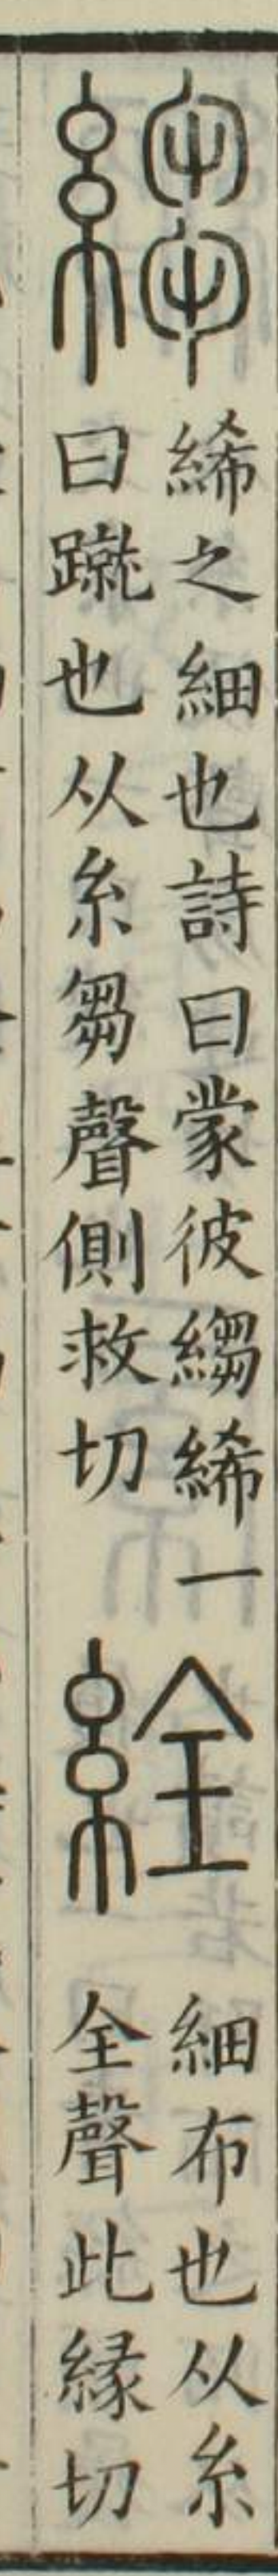 縐
絺之細也詩曰蒙彼縐絺一
曰蹴也从糸芻聲側救切
絟
細布也从糸
全聲此緣切